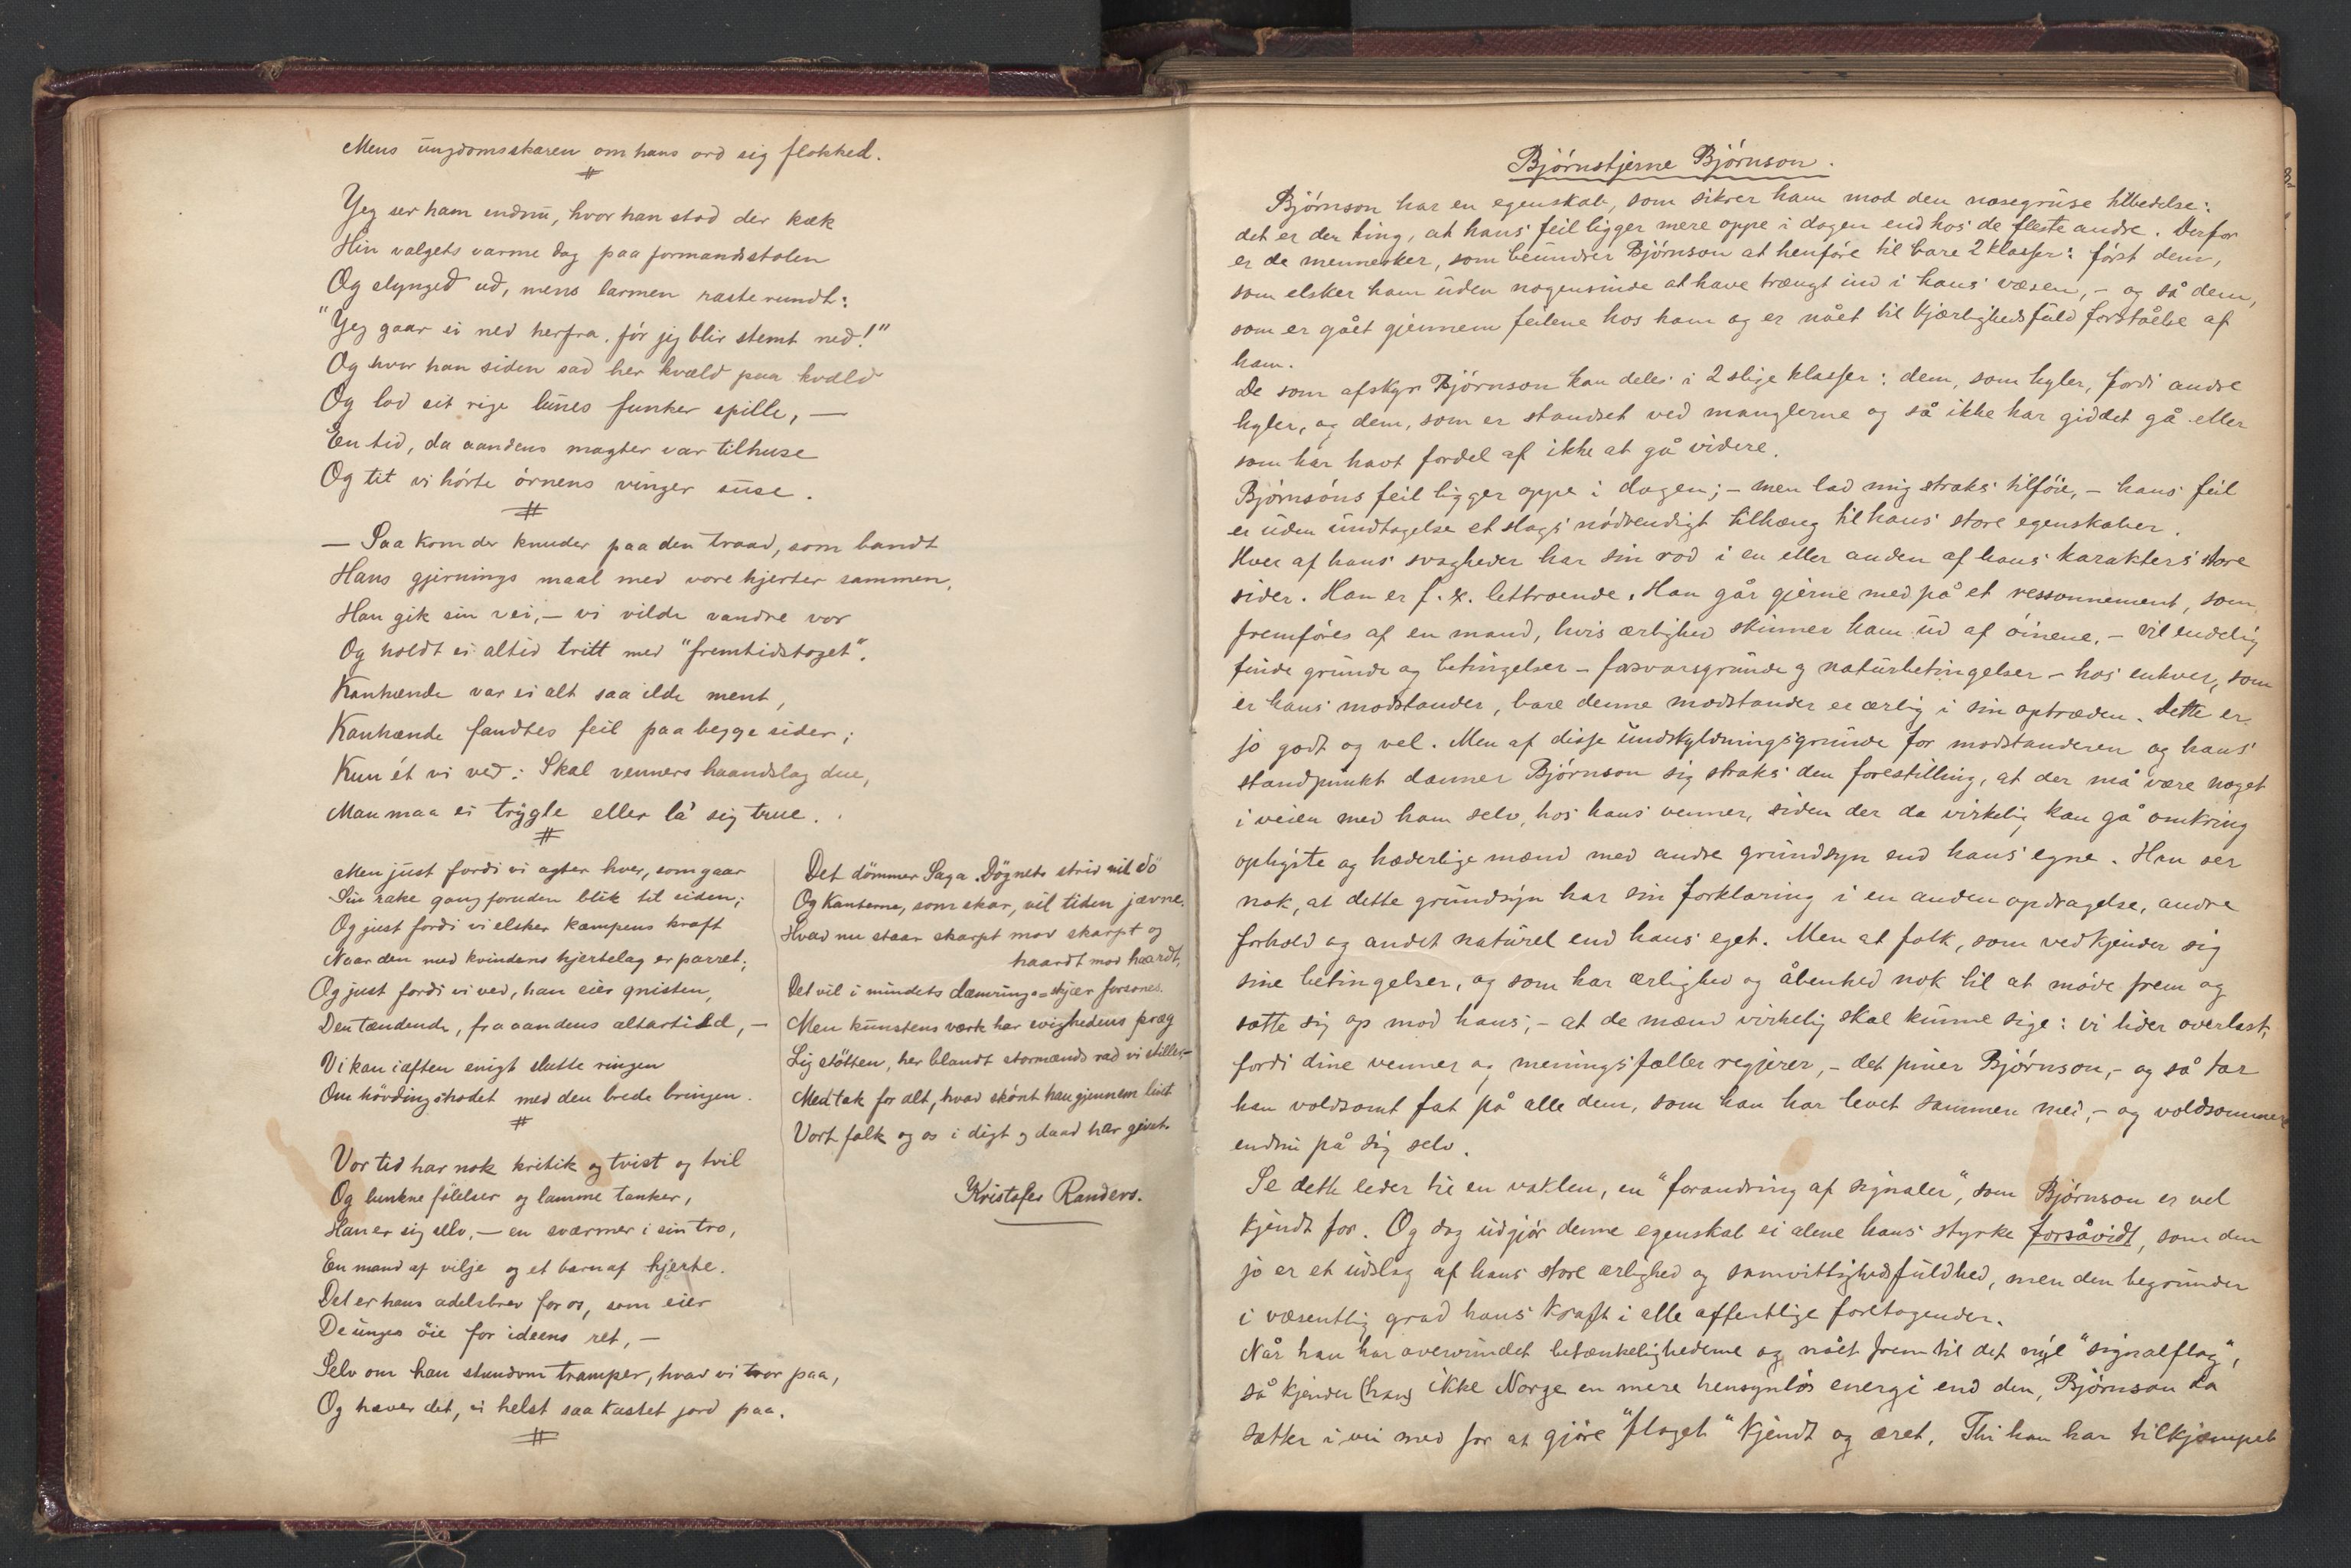 Mens ungdomsskaren om hans ord sig flokked.
#
Jeg ser ham endnu, hvor han stod der kæk
Hin valgets varme dag paa formandsstolen
Og slynged ud, mens larmen raste rundt:
"Jeg gaar ei ned herfra, før jeg blir stemt ned!"
Og hvor han siden sad her kvæld paa kvæld
Og lod sit rige lunes funker spille, —
En tid, da aandens magter var tilhuse
Og tit vi hørte ørnens vinger suse.
#
— Saa kom der knuder paa den traad, som bandt
Hans gjernings maal med vore hjerter sammen,
Han gik sin vei, — vi vilde vandre vor
Og holdt ei altid tritt med "fremtidstoget".
Kanhænde var ei alt saa ilde ment,
Kanhænde fandtes feil paa begge sider;
Kun ét vi ved: Skal venners haandslag due,
Man maa ei trygle eller la' sig true.
#
Men just fordi vi agter hver, som gaar
Sin rake gang foruden blik til siden;
Og just fordi vi elsker kæmpens kraft
Naar den med kvindens hjertelag er parret;
Og just fordi vi ved, han eier gnisten,
Den tændende, fra aandens altartild, —
Vi kan iaften enigt slutte ringen
Om høvdingshodet med den brede bringen.
#
Vor tid har nok kritik og tvist og tvil
Og lunkne følelser og lamme tanker,
Han er sig selv, — en sværmer i sin tro,
En mand af vilje og et barn af hjerte.
Det er hans adelsbrev for os, som eier
De unges øie for ideens ret, —
Selv om han stundom tramper, hvad vi tror paa,
Og hæver det, vi helst saa kastet jord paa.
#
Det dømmer Saga. Døgnets strid vil dø
Og Kanterne, som skar, vil tiden jævne.
Hvad nu staar skarpt mod skarpt og
haardt mod haardt,
Det vil i mindets dæmrings=skjær forsones.
Men kunstens værk har evighedens præg
Lig støtten, her blandt stormænds rad vi stiller—
Med tak for alt, hvad skønt han gjennem livet
Vort folk og os i digt og daad har givet.
Kristofer Randers.
Bjørnstjerne Bjørnson.
Bjørnson har en egenskab, som sikrer ham mod den næsegruse tilbedelse:
det er den ting, at hans feil ligger mere oppe i dagen end hos de fleste andre. Derfor
er de mennesker, som beundrer Bjørnson at henføre til bare 2 klasser: først dem,
som elsker ham uden nogensinde at have trængt ind i hans væsen, – og så dem,
som er gået gjennem feilene hos ham og er nået til kjærlighedsfuld forståelse af
ham.
De som afskyr Bjørnson kan deles i 2 slige klasser: dem, som hyler, fordi andre
hyler, og dem, som er standset ved manglerne og så ikke har giddet gå eller
som har havt fordel af ikke at gå videre.
Bjørnsøns feil ligger oppe i dagen; – men lad mig straks tilføie, – hans feil
er uden undtagelse et slags nødvendigt tilhæng til hans store egenskaber.
Hver af hans svagheder har sin rod i en eller anden af hans karakters store
sider. Han er f. ex. lettroende. Han går gjerne med på et ressonnement, som
fremføres af en mand, hvis ærlighed skinner ham ud af øinene, – vil endelig
finde grunde og betingelser – forsvarsgrunde og naturbetingelser – hos enhver, som
er hans modstander, bare denne modstander er ærlig i sin optræden. Dette er
jo godt og vel. Men af disse undskyldningsgrunde for modstanderen og hans
standpunkt danner Bjørnson sig straks den forestilling, at der må være noget
i veien med ham selv, hos hans venner, siden der da virkelig kan gå omkring
oplyste og hæderlige mænd med andre grundsyn end hans egne. Han ser
nok, at dette grundsyn har sin forklaring i en anden opdragelse, andre
forhold og andet naturel end hans eget. Men at folk, som vedkjender sig
sine betingelser, og som har ærlighed og åbenhed nok til at møde frem og
sætte sig op mod hans, – at de mænd virkelig skal kunne sige: vi lider overlast,
fordi dine venner og meningsfæller regjerer, – det piner Bjørnson, – og så tar
han voldsomt fat på alle dem, som han har levet sammen med, – og voldsommere
endnu på sig selv.
Se dette leder til en vaklen, en "forandring af signaler", som Bjørnson er vel
kjendt for. Og dog udgjør denne egenskab ei alene hans styrke forsåvidt, som den
jo er et udslag af hans store ærlighed og samvittighedsfuldhed, men den begrunder
i væsentlig grad hans kraft i alle offentlige foretagender.
Når han har overvundet betænkelighederne og nået frem til det nye "signalflag",
så kjender (han) ikke Norge en mere hensynløs energi end den, Bjørnson da
sætter i vei med for at gjøre "flaget" kjendt og æret. Thi han har tilkjæmpet